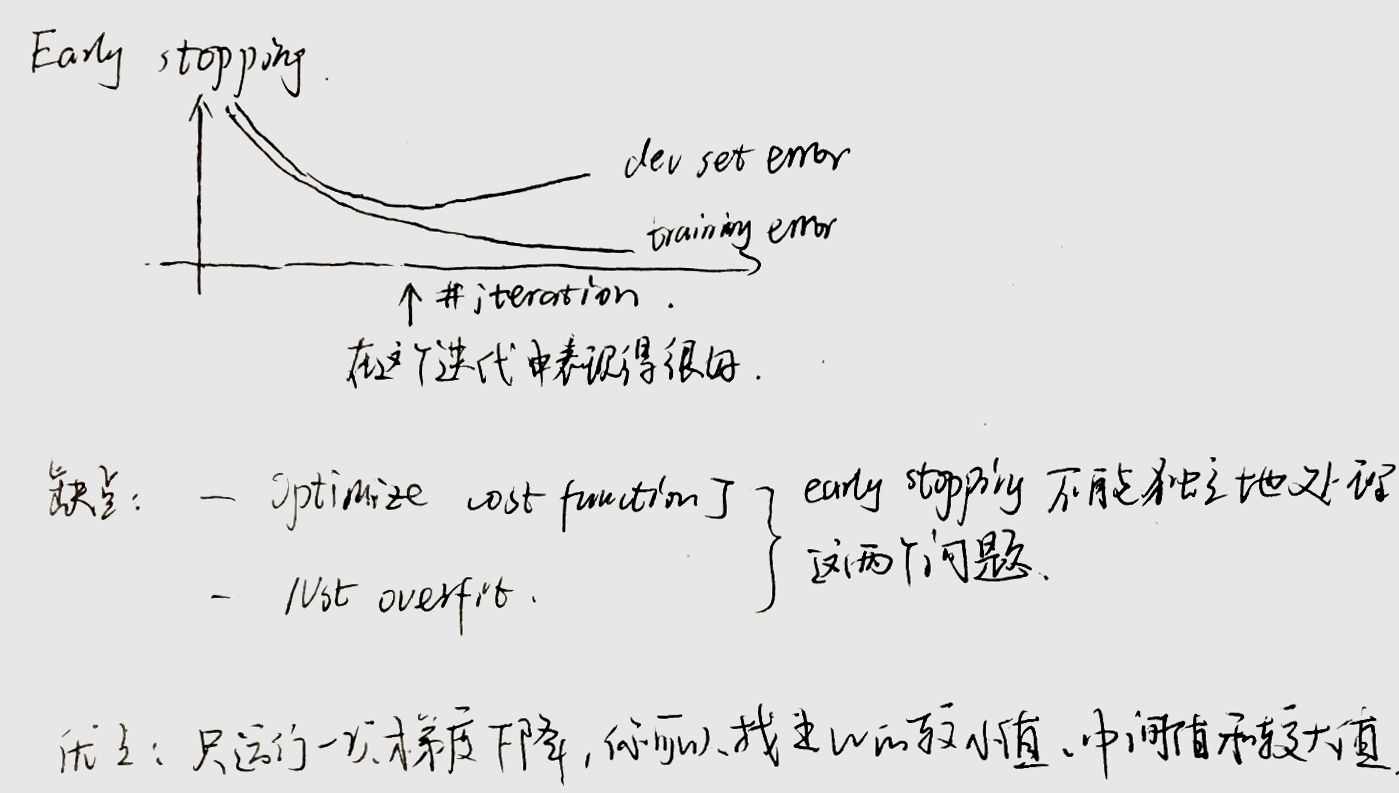 Early stopping.
dev set error
training error
↑ #iteration.
在这个迭代中表现得很好.
缺点: — Optimize cost function J } early stopping 不能独立地处理
这两个问题.
- Not overfit.
优点: 只运行一次梯度下降,你可以找出w的较小值、中间值和较大值.